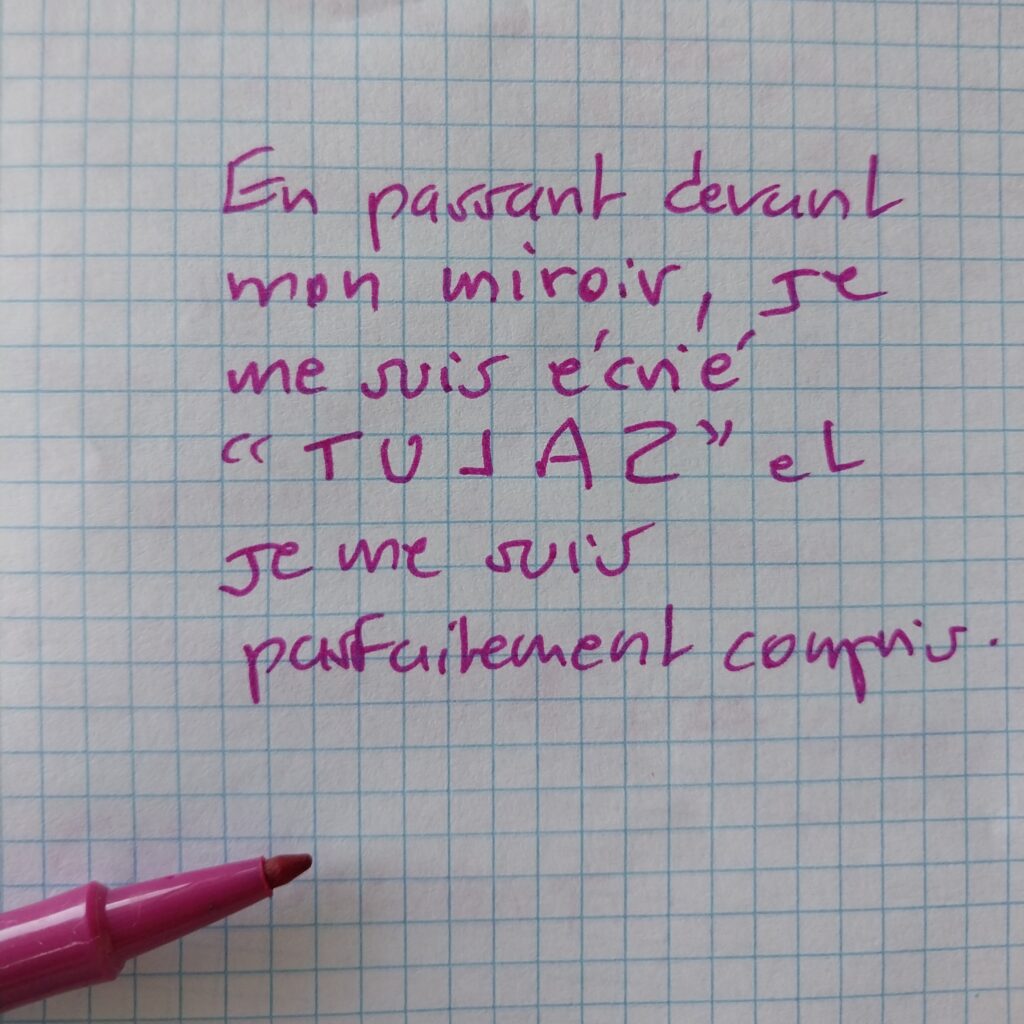 En passant devant
mon miroir, je
me suis écrié
« TU⅃AƧ » et
je me suis
parfaitement compris.